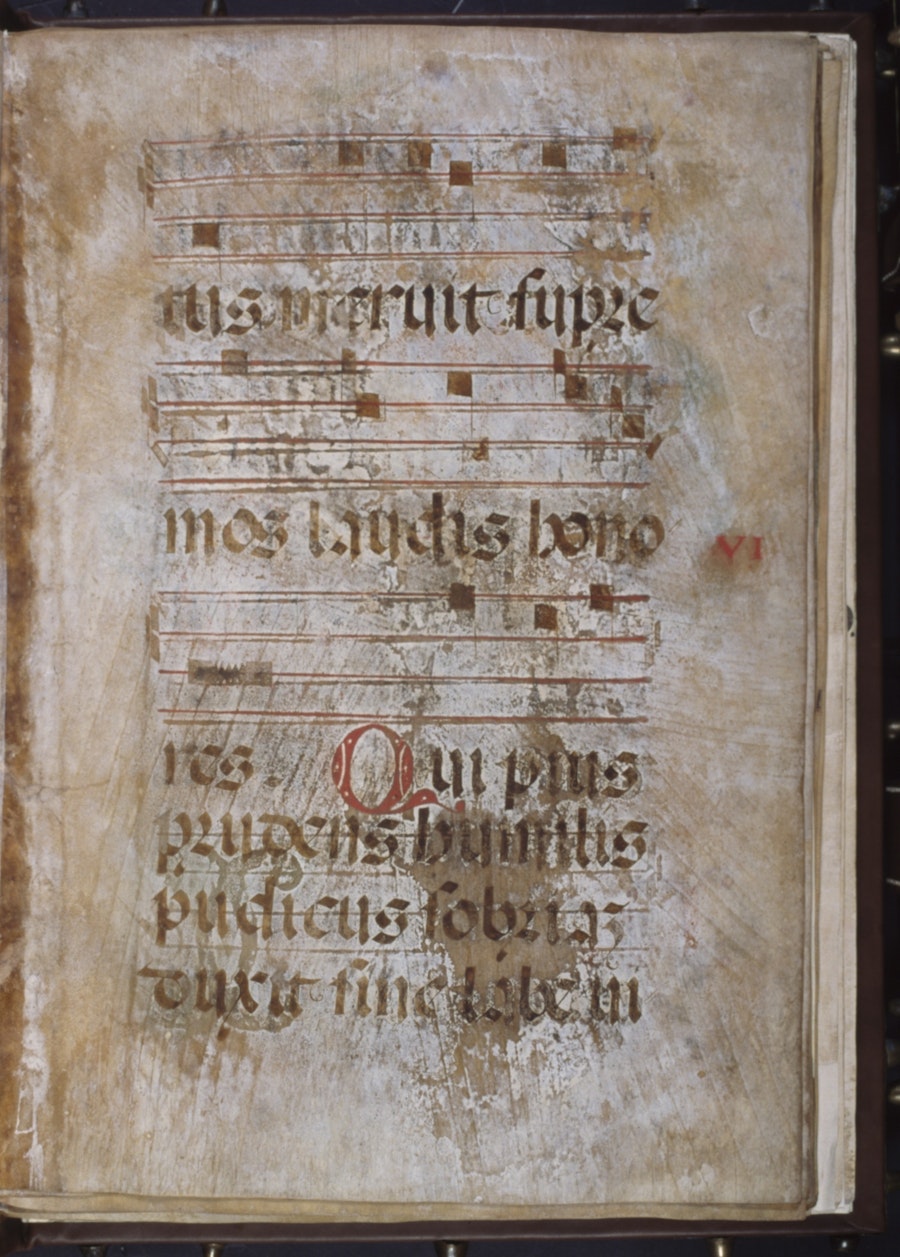 tus meruit supre
mos laudis hono
VI
res. Qui pius
prudens humilis
pudicus sobriaʒ
duxit sine labe ui